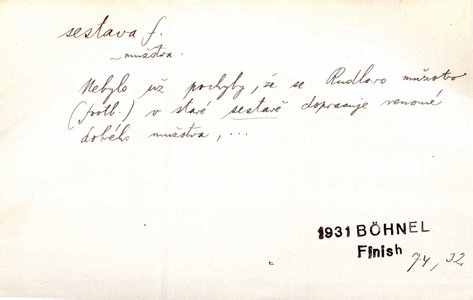 sestava f.
~ mužstva.
Nebylo už pochyby, že se Rudlovo mužstvo
(fotb.) v staré sestavě dopracuje renomé
dobého mužstva, ...
1931 BÖHNEL
Finish 74, 32